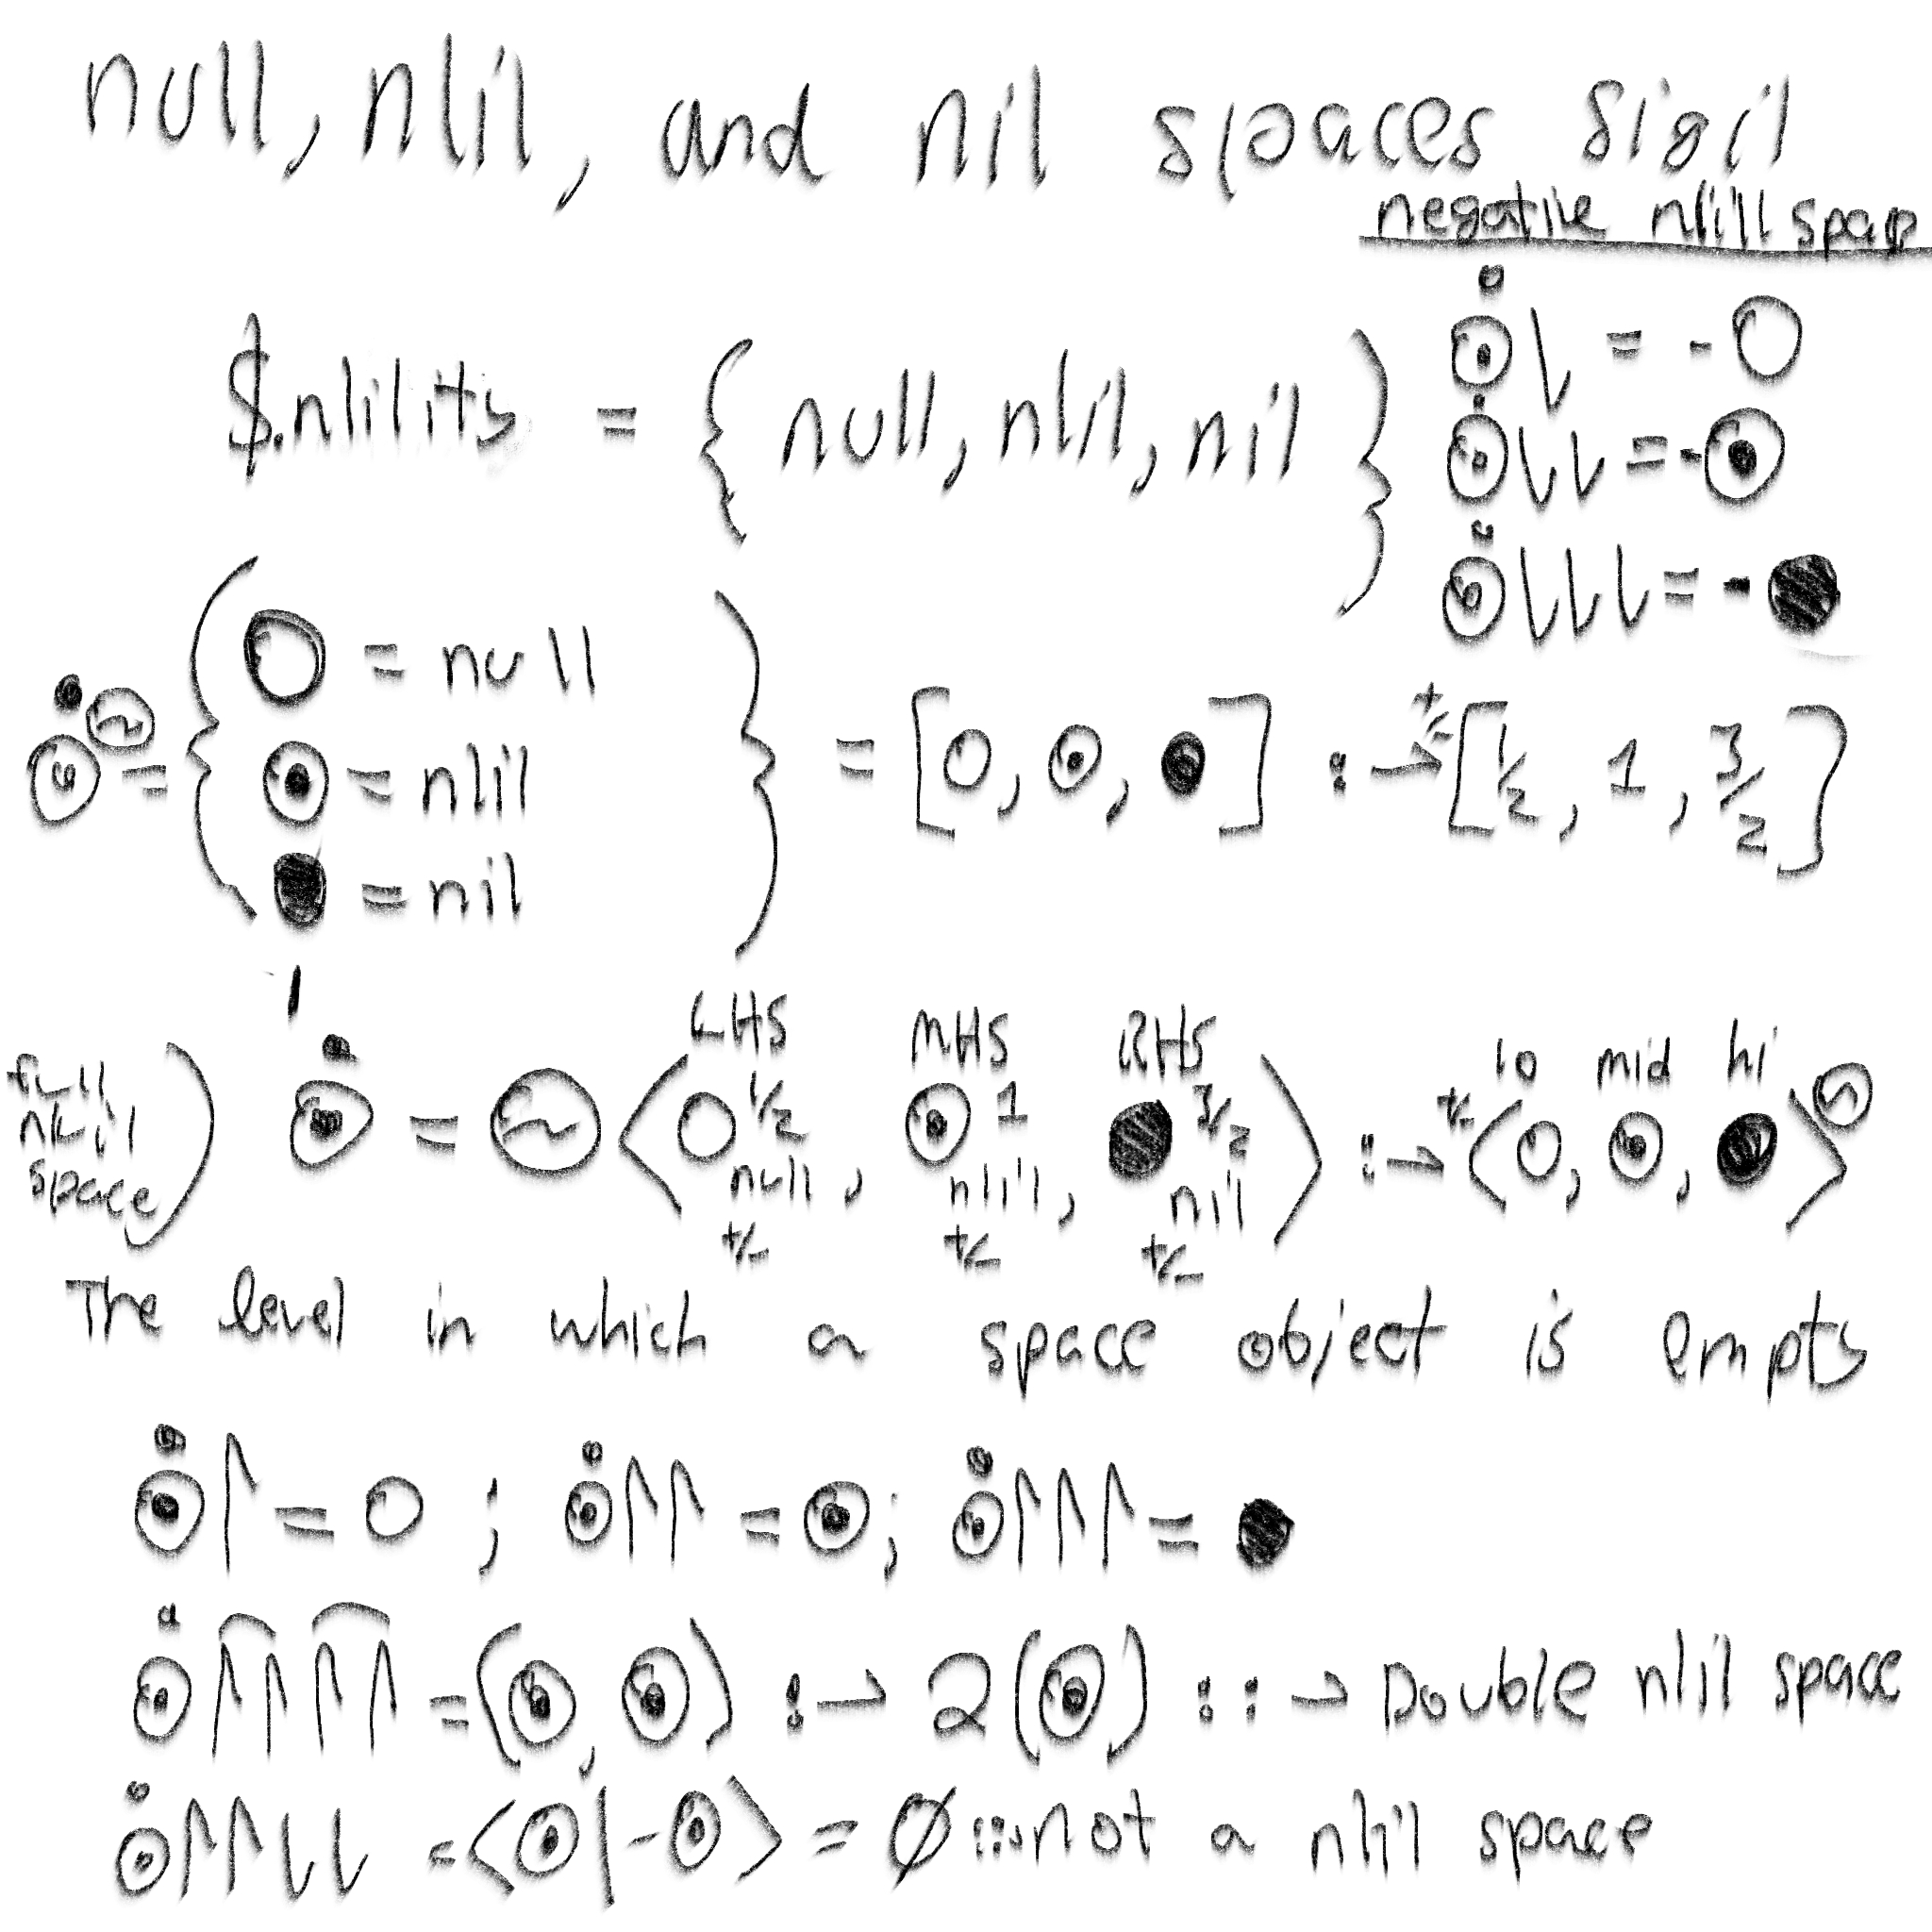 null, nlil, and nil spaces sigil
negative nlill spac
$.nlility = { null, nlil, nil }
⊙̇⇂ = -○
⊙̇⇂⇂ = -⊙
⊙̇⇂⇂⇂ = -●
○ = null
⊙̇ = { ⊙ = nlil } = [○, ⊙, ●] :⇀ +/- [1/2, 1, 3/2]
● = nil
LHS MHS RHS lo mid hi
full nlil space) ⊙̇ = ⊝ ⟨○ 1/2 null +/-, ⊙ 1 nlil +/-, ● 3/2 nil +/-⟩ ::⇀ +/- ⟨○, ⊙, ●⟩
The level in which a space object is empty
⊙̇↾ = ○ ; ⊙̇↾↾ = ⊙; ⊙̇↾↾↾ = ●
⊙̇↾↾↾↾ = (⊙, ⊙) :⇀ 2(⊙) ::⇀ Double nlil space
⊙̇↾↾⇂⇂ = ⟨⊙|-⊙⟩ = ∅ :::⇀ not a nlil space